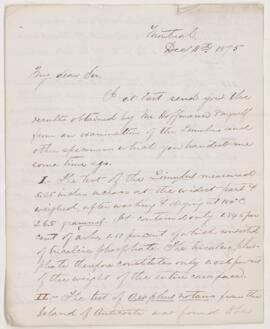 Montreal
Dec 11th 1875
My dear Sir,
I at last send you the
results obtained by Mr Hoffmann & myself
from an examination of the Limulus and
other specimens which you handed me
some time ago.
I. The test of the Limulus measured
inches across at the widest part &
weighed, after washing & drying at 100°C
26.5 grammes. It contained only 
cent of ashes, percent of which consisted
of tricalcic phosphate. The tricalcic phos-
phate therefore constitutes only per cent
of the weight of the entire carapace.
II. The test of from the
Island of Anticosti was found to be